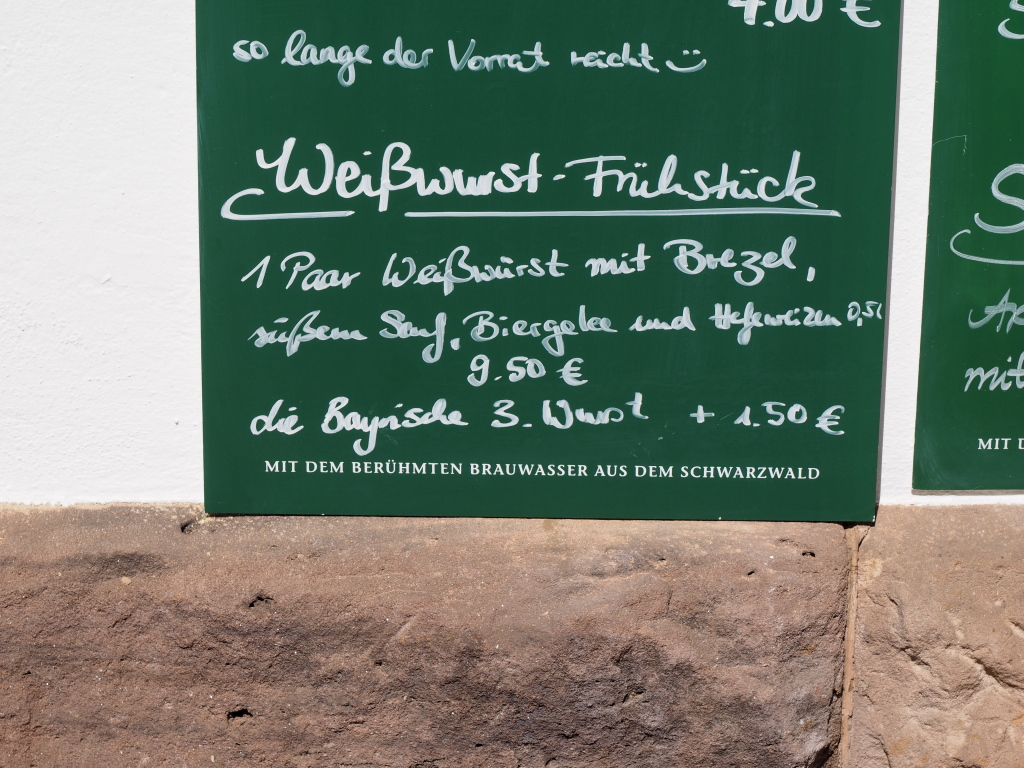 4.00 €
so lange der Vorrat reicht
Weißwurst-Frühstück
1 Paar Weißwürst mit Brezel,
süßem Senf, Biergelee und Hefeweizen 0,5l
9.50 €
die Bayrische 3. Wurst + 1.50 €
MIT DEM BERÜHMTEN BRAUWASSER AUS DEM SCHWARZWALD
mit
MIT